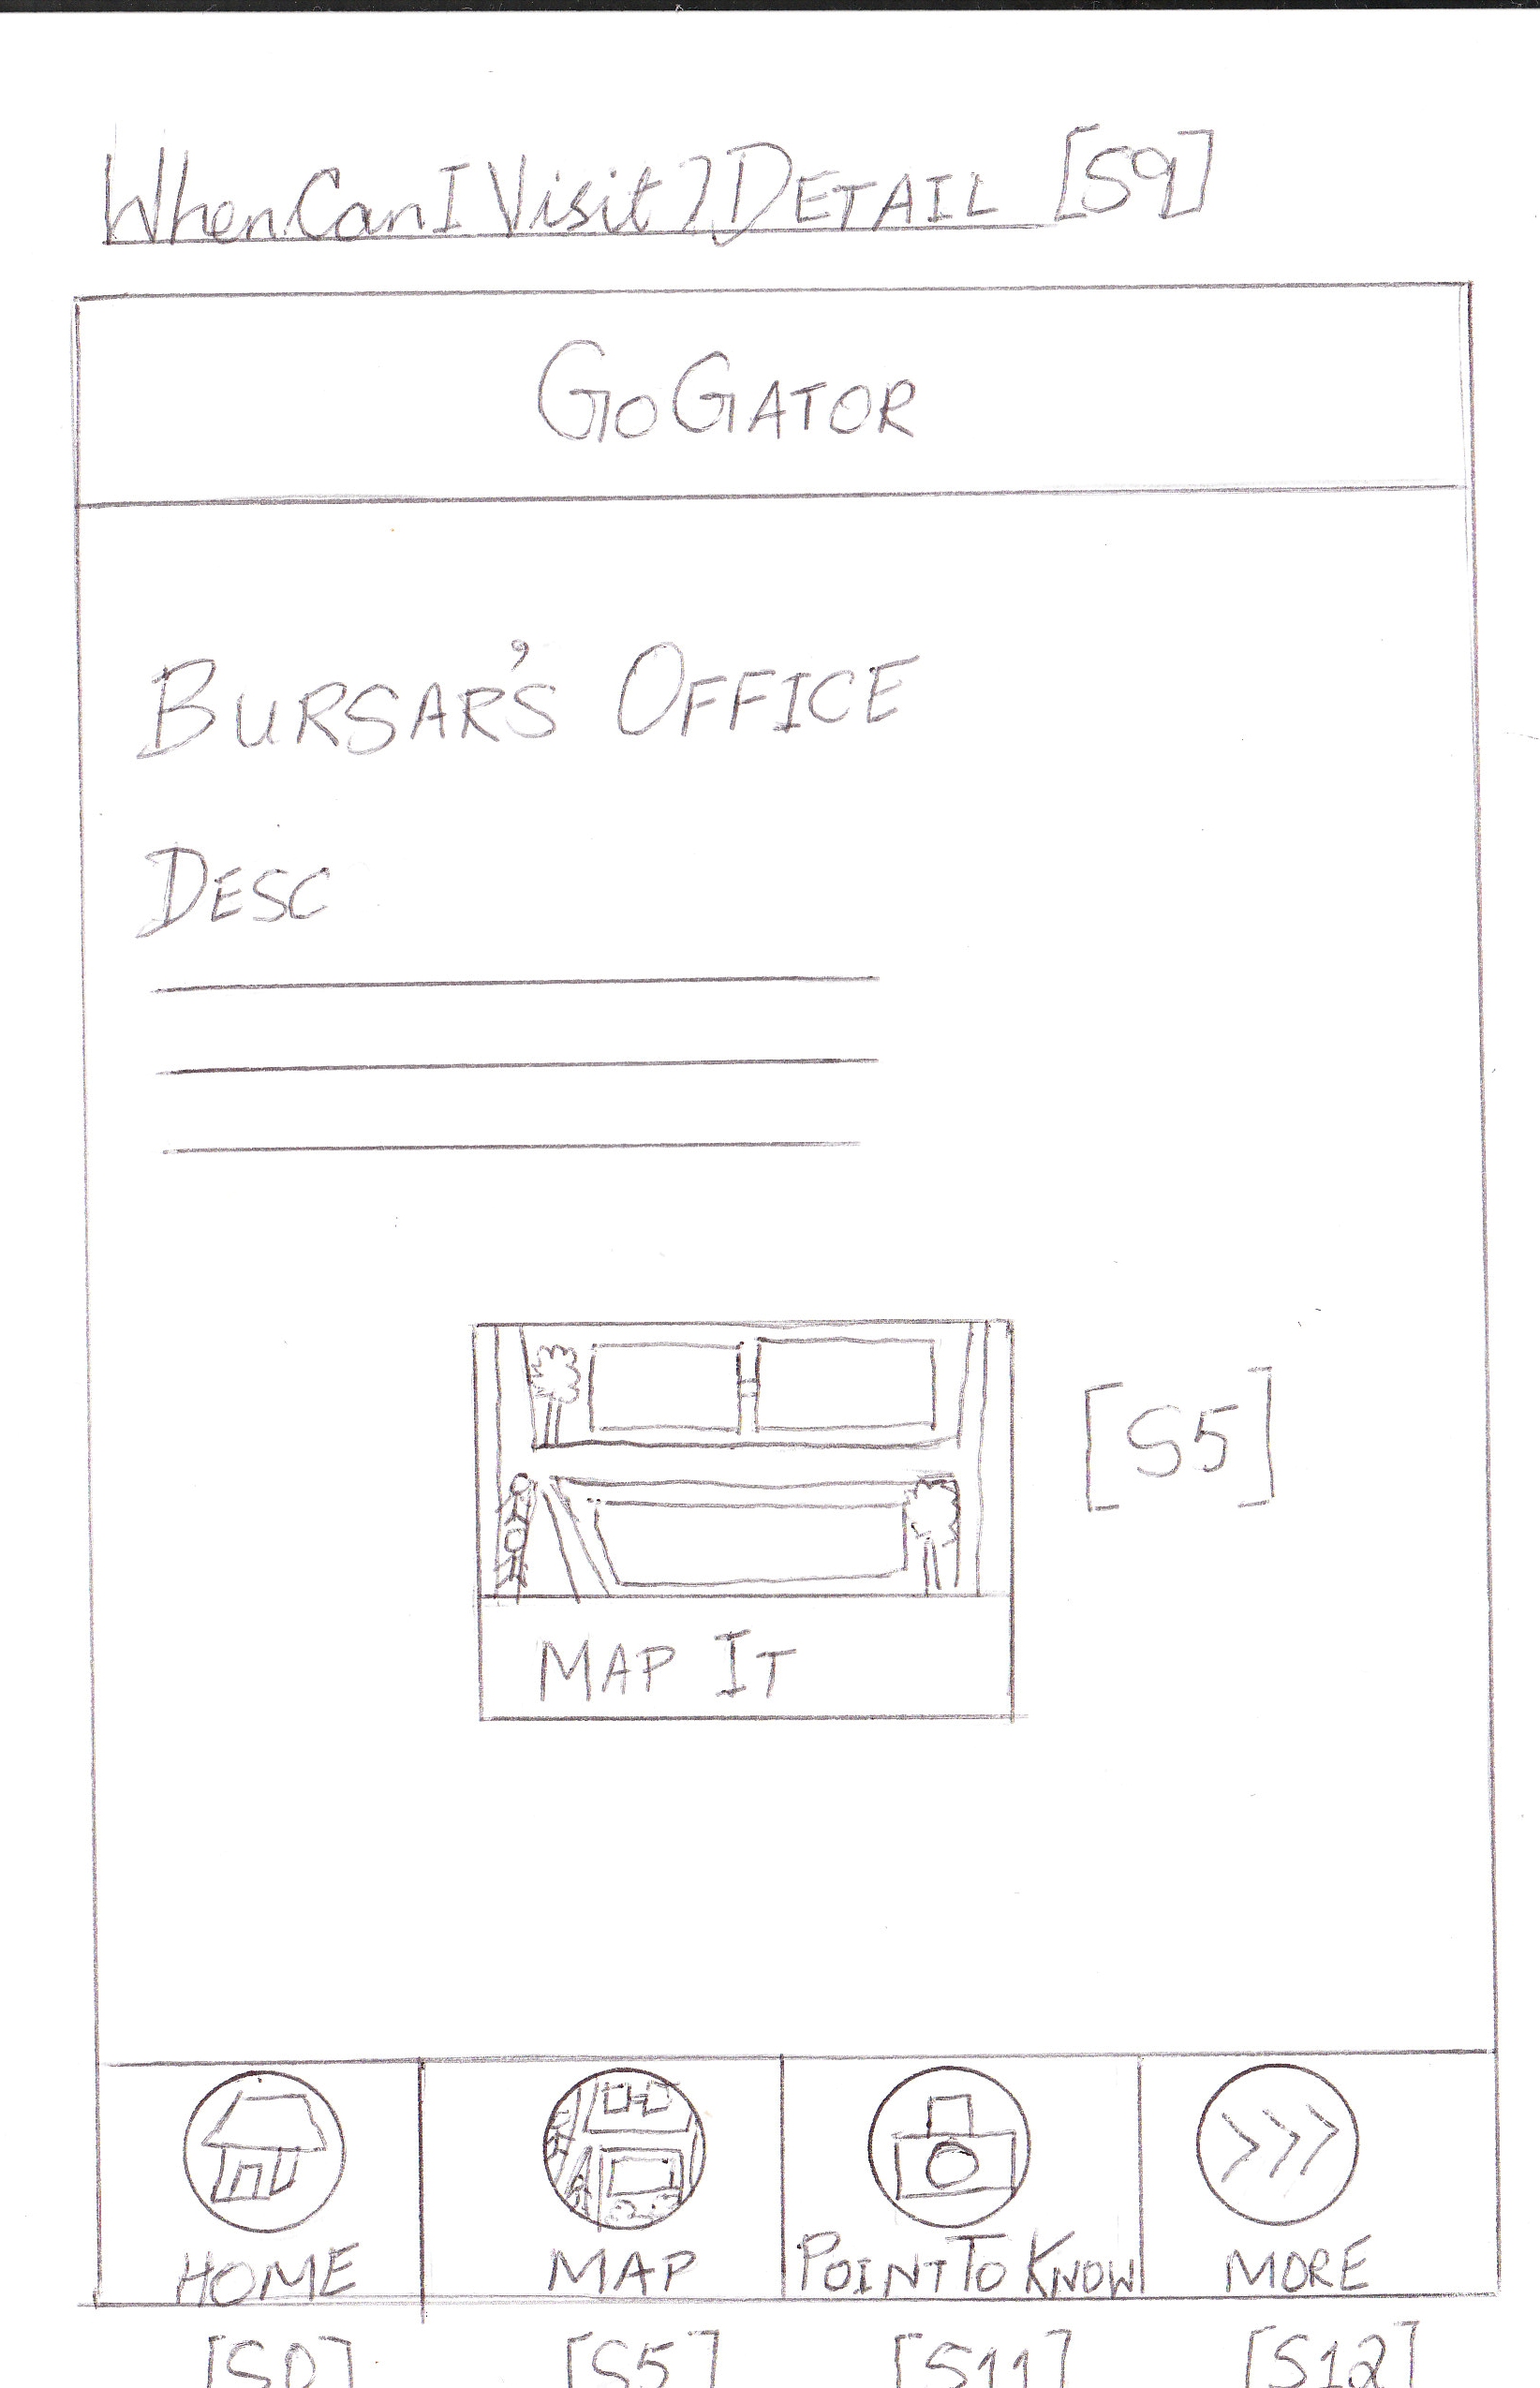 WhenCanIVisit? DETAIL [S9]
GoGATOR
BURSAR'S OFFICE
DESC
[S5]
MAP IT
HOME MAP POINTTOKNOW MORE
[S0] [S5] [S11] [S12]